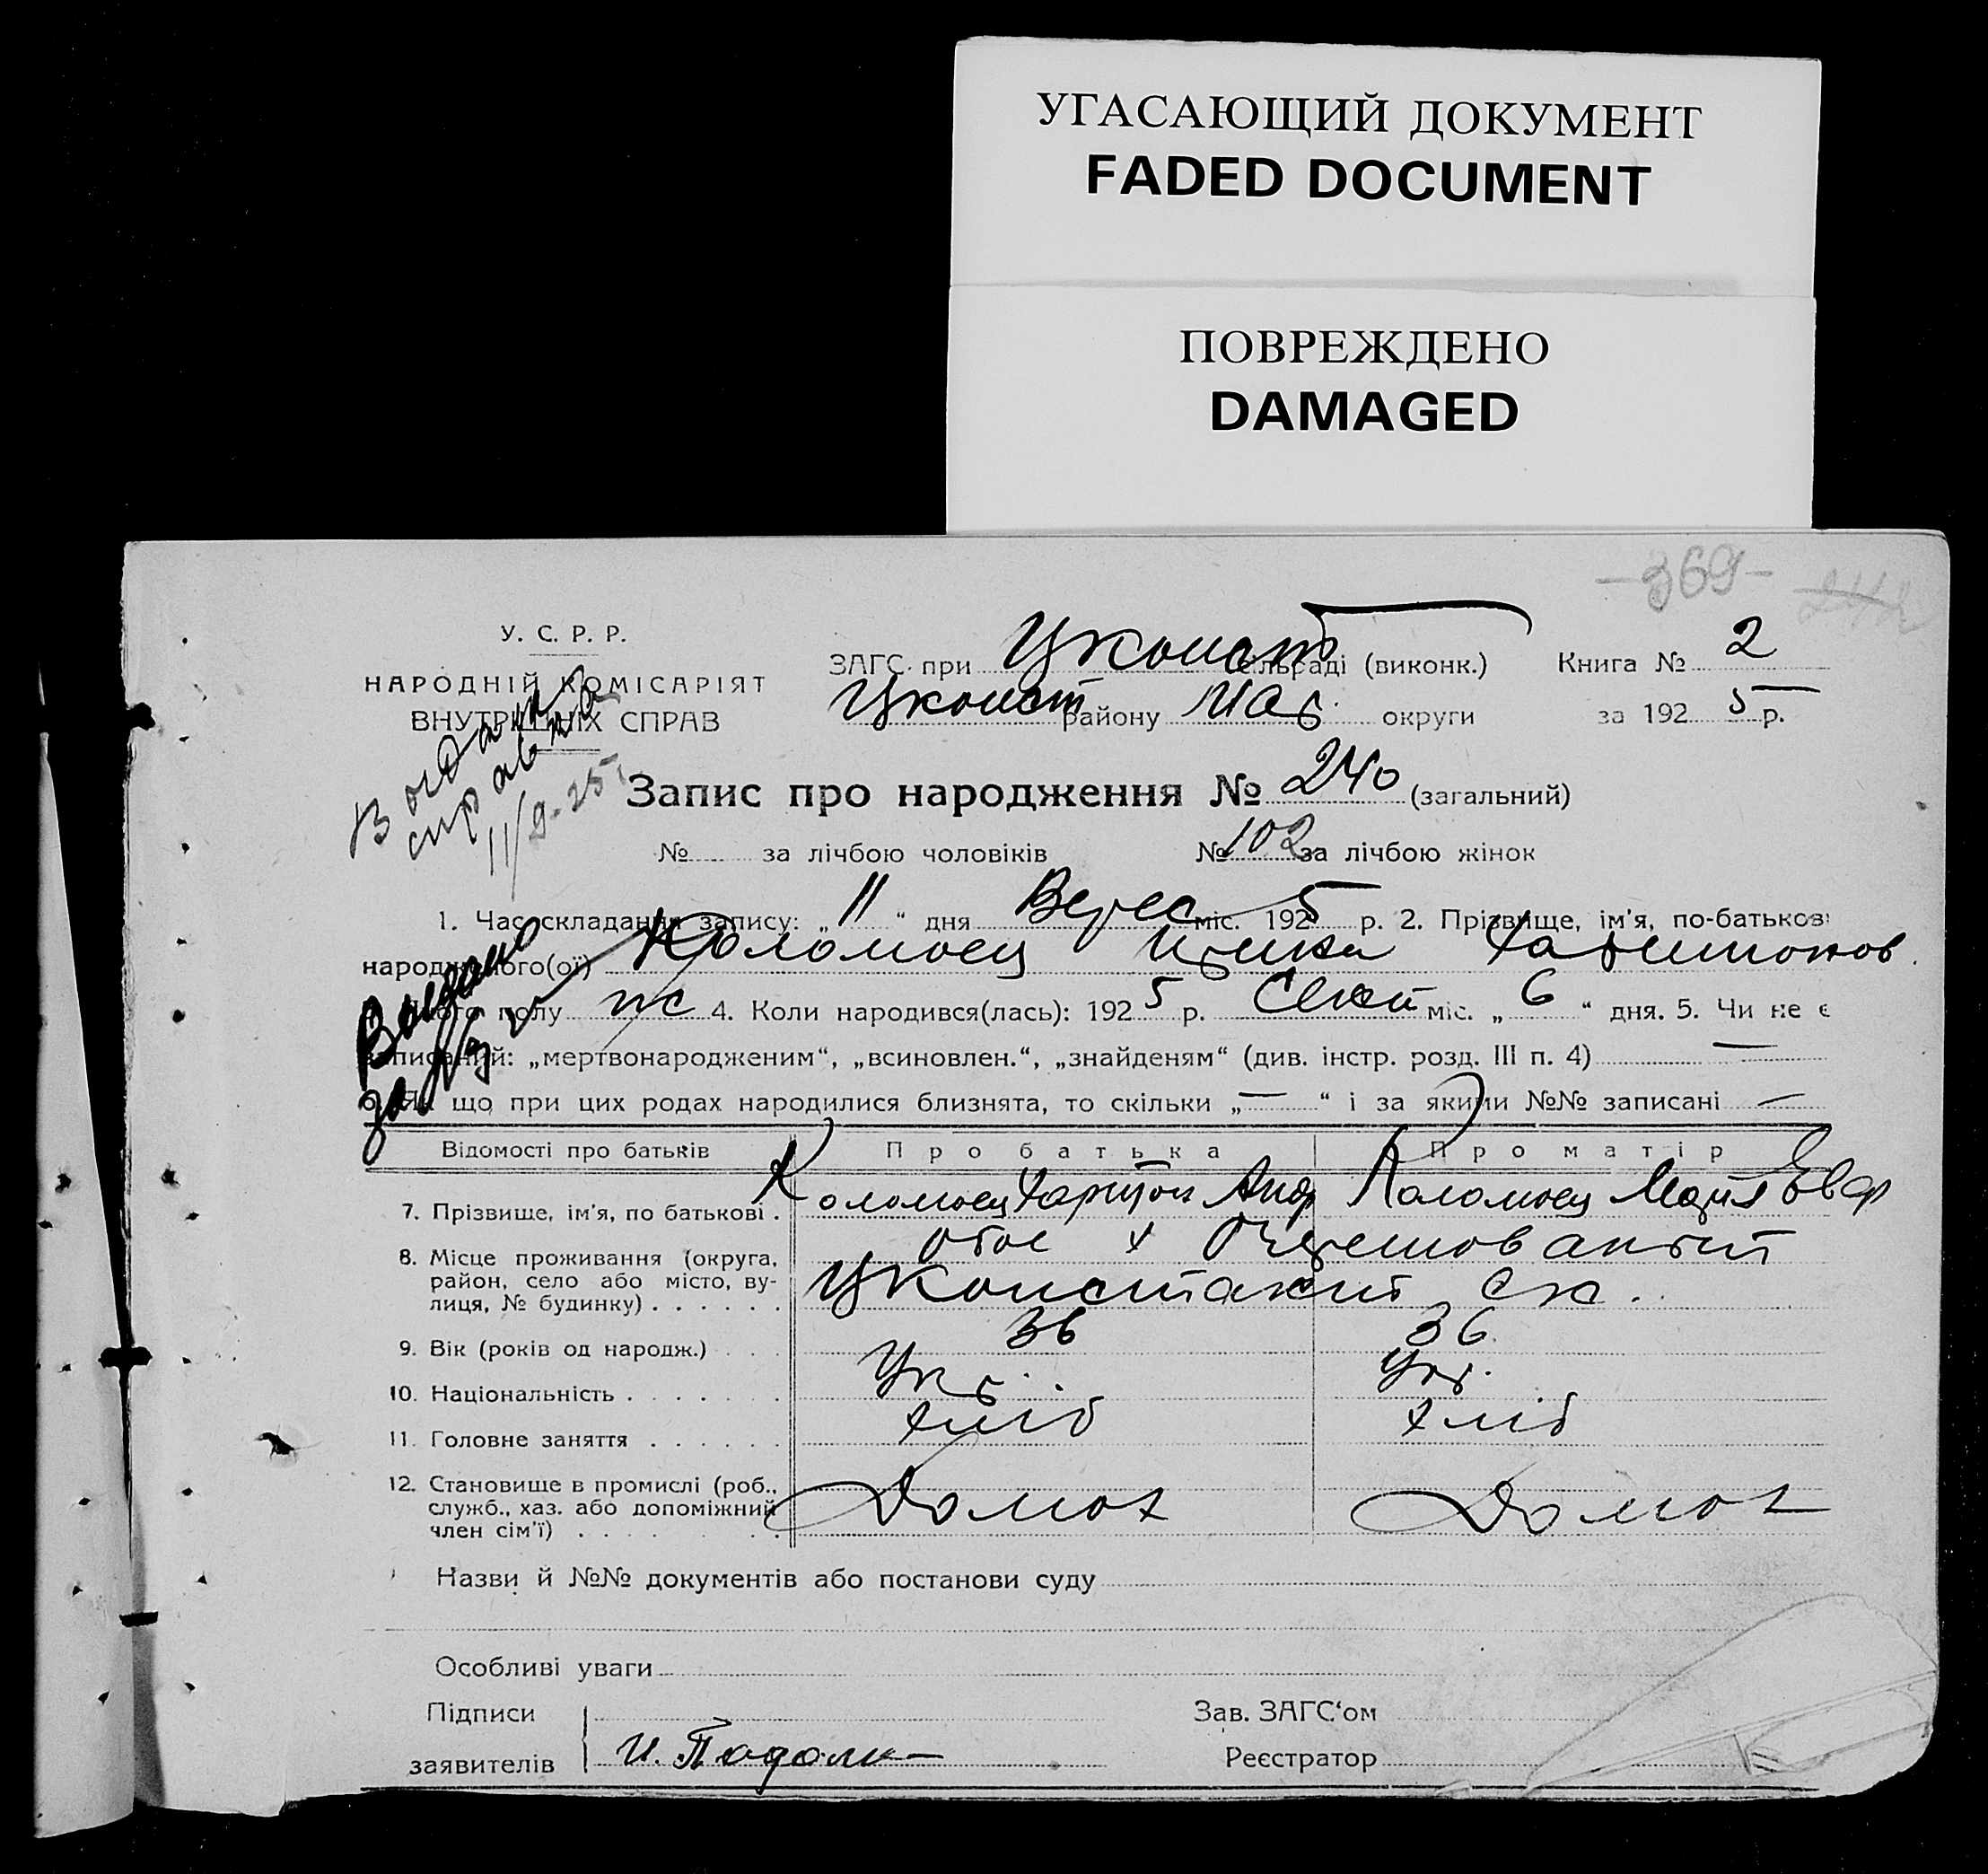 УГАСАЮЩИЙ ДОКУМЕНТ
FADED DOCUMENT
ПОВРЕЖДЕНО
DAMAGED
-369-
У. С. Р. Р.
НАРОДНІЙ КОМІСАРІЯТ
ВНУТРІШНІХ СПРАВ
ЗАГС при Уконст сільраді (виконк.) Книга № 2
Уконст району Мар. округи за 1925 р.
11/9-25
Запис про народження № 240 (загальний)
№ за лічбою чоловіків № 102 за лічбою жінок
1. Час складання запису: „ 11 “ дня Верес міс. 1925 р. 2. Прізвище, ім'я, по-батькові
народженого(ої) Коломоец Харитонов.
полу жс 4. Коли народився(лась): 1925 р. міс. „ 6 “ дня. 5. Чи не є
записаний: „мертвонародженим“, „всиновлен.“, „знайденям“ (див. інстр. розд. III п. 4) —
6. Як що при цих родах народилися близнята, то скільки „ — “ і за якими №№ записані —
Відомості про батьків Про батька Про матір
7. Прізвище, ім'я, по батькові . Коломоец Харитон Анд Коломоец Мария Евд
8. Місце проживання (округа,
район, село або місто, ву-
лиця, № будинку) . . . . . .
9. Вік (років од народж.) . . . 36 36
10. Національність . . . . . . Укр. Укр.
11. Головне заняття . . . . . . хліб хліб
12. Становище в промислі (роб.,
служб., хаз. або допоміжний
член сім'ї) . . . . . . Домох Домох
Назви й №№ документів або постанови суду
Особливі уваги
Підписи Зав. ЗАГС‘ом
заявителів Реєстратор